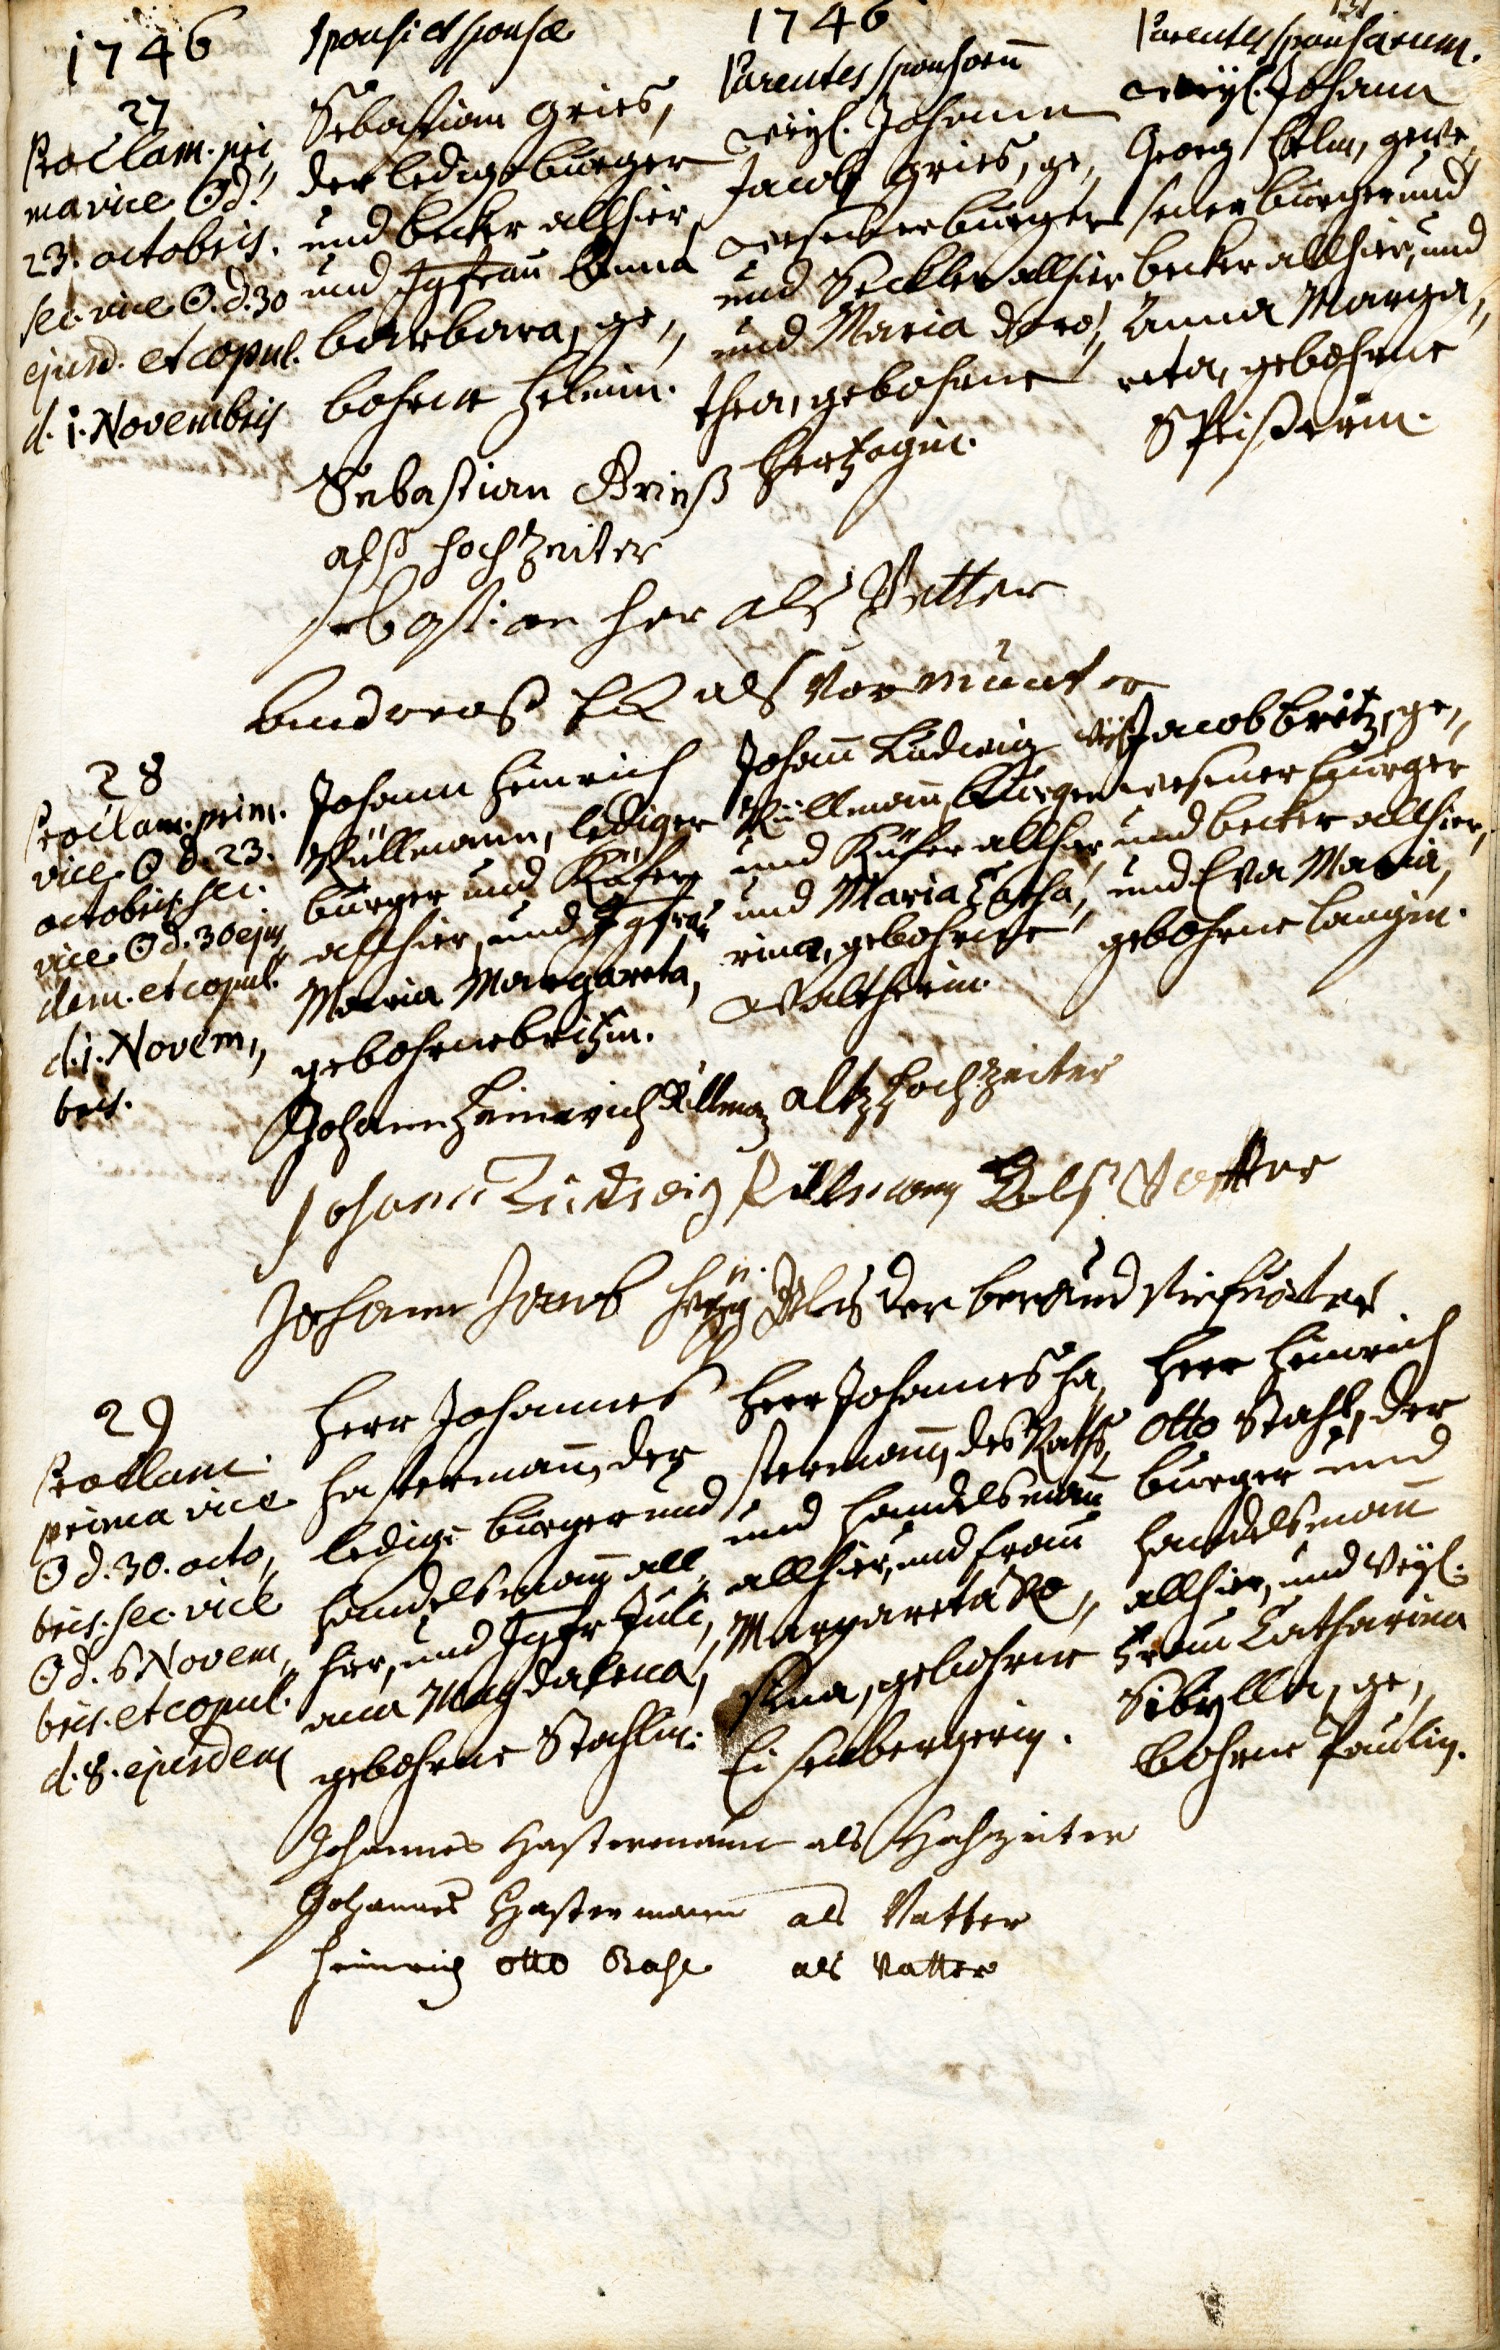 1746
Sponsi et sponsae
1746
Parentes sponsorū
Parentes sponsarum.
27
Proclam. pri„
ma vice ☉ d.
23. octobris.
sec. vice ☉. d. 30
ejusd. et copul.
d. 1. Novembris
Sebastian Gries,
der ledige burger
und becker allhier
und Jgfrau Anna
barbara, ge„
bohrne Helmin.
weyl. Johann
Jacob Gries, ge„
wesener burger
und Seckler allhier
und Maria doro„
thea, gebohrne
Hertzogin.
weyl. Johann
Georg Helm, gewe„
sener burger und
becker allhier, und
Anna Marga„
reta, gebohrne
Speisserin.
Sebastian Grieß
alß hochzeiter
sebastian her als Vetter
andreas als Vormunter
28
Proclam. prim.
vice ☉ d. 23.
octobris sec.
vice ☉ d. 30 ejus„
dem. et copul.
d. 1. Novem„
bris.
Johann Heinrich
Küllmann, lediger
burger und Küfer
allhier, und Jgfrau
Maria Margareta,
gebohrne britzin.
Johañ Ludwig
Küllmann, burger
und Küfer allhier
und Maria Catha„
rina, gebohrne
Waltherin.
weyl. Jacob britz, ge„
wesener burger
und becker allhier,
und Eva Maria,
gebohrne langin.
Johann Heinrich Killman altz Hochzeiter
Johann Ludwig Killmann Als Vatter
Johann Jacob Als der braud stiefvater
29
Proclam.
prima vice
☉ d. 30. octo„
bris. sec. vice
☉ d. 6 Novem„
bris. et copul.
d. 8. ejusdem
Herr Johannes
Hastermañ, der
ledige burger und
handelsmañ all„
hier, und Jgfr Juli„
ana Magdalena,
gebohrne Stahlin.
Herr Johannes Ha„
stermañ, des Raths,
und handelsmañ
allhier, und frau
Margareta Ro„
sina, gebohrne
Eisenbergerin.
Herr Heinrich
Otto Stahl, der
burger und
handelsmañ
allhier, und weyl.
Frau Catharina
Sibylla, ge„
bohrne Paulin.
Johannes Hastermann als Hochzeiter
Johannes Hastermann als Vatter
Heinrich Otto Stahl als Vatter